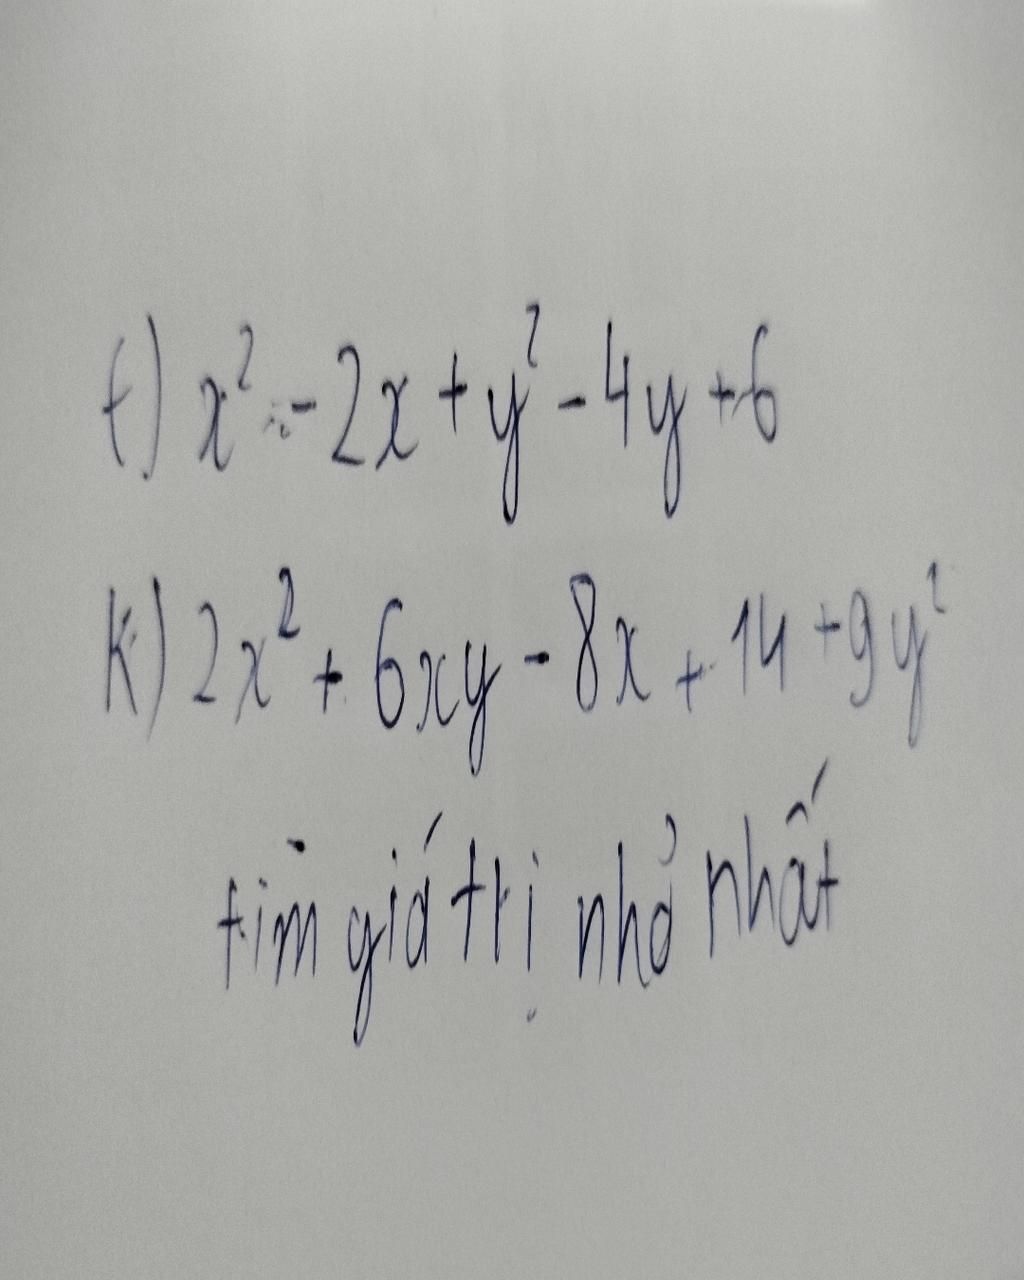 t) x² - 2x + y² - 4y + 6
K) 2x² + 6xy - 8x + 14 + 9y²
tìm giá trị nhỏ nhất